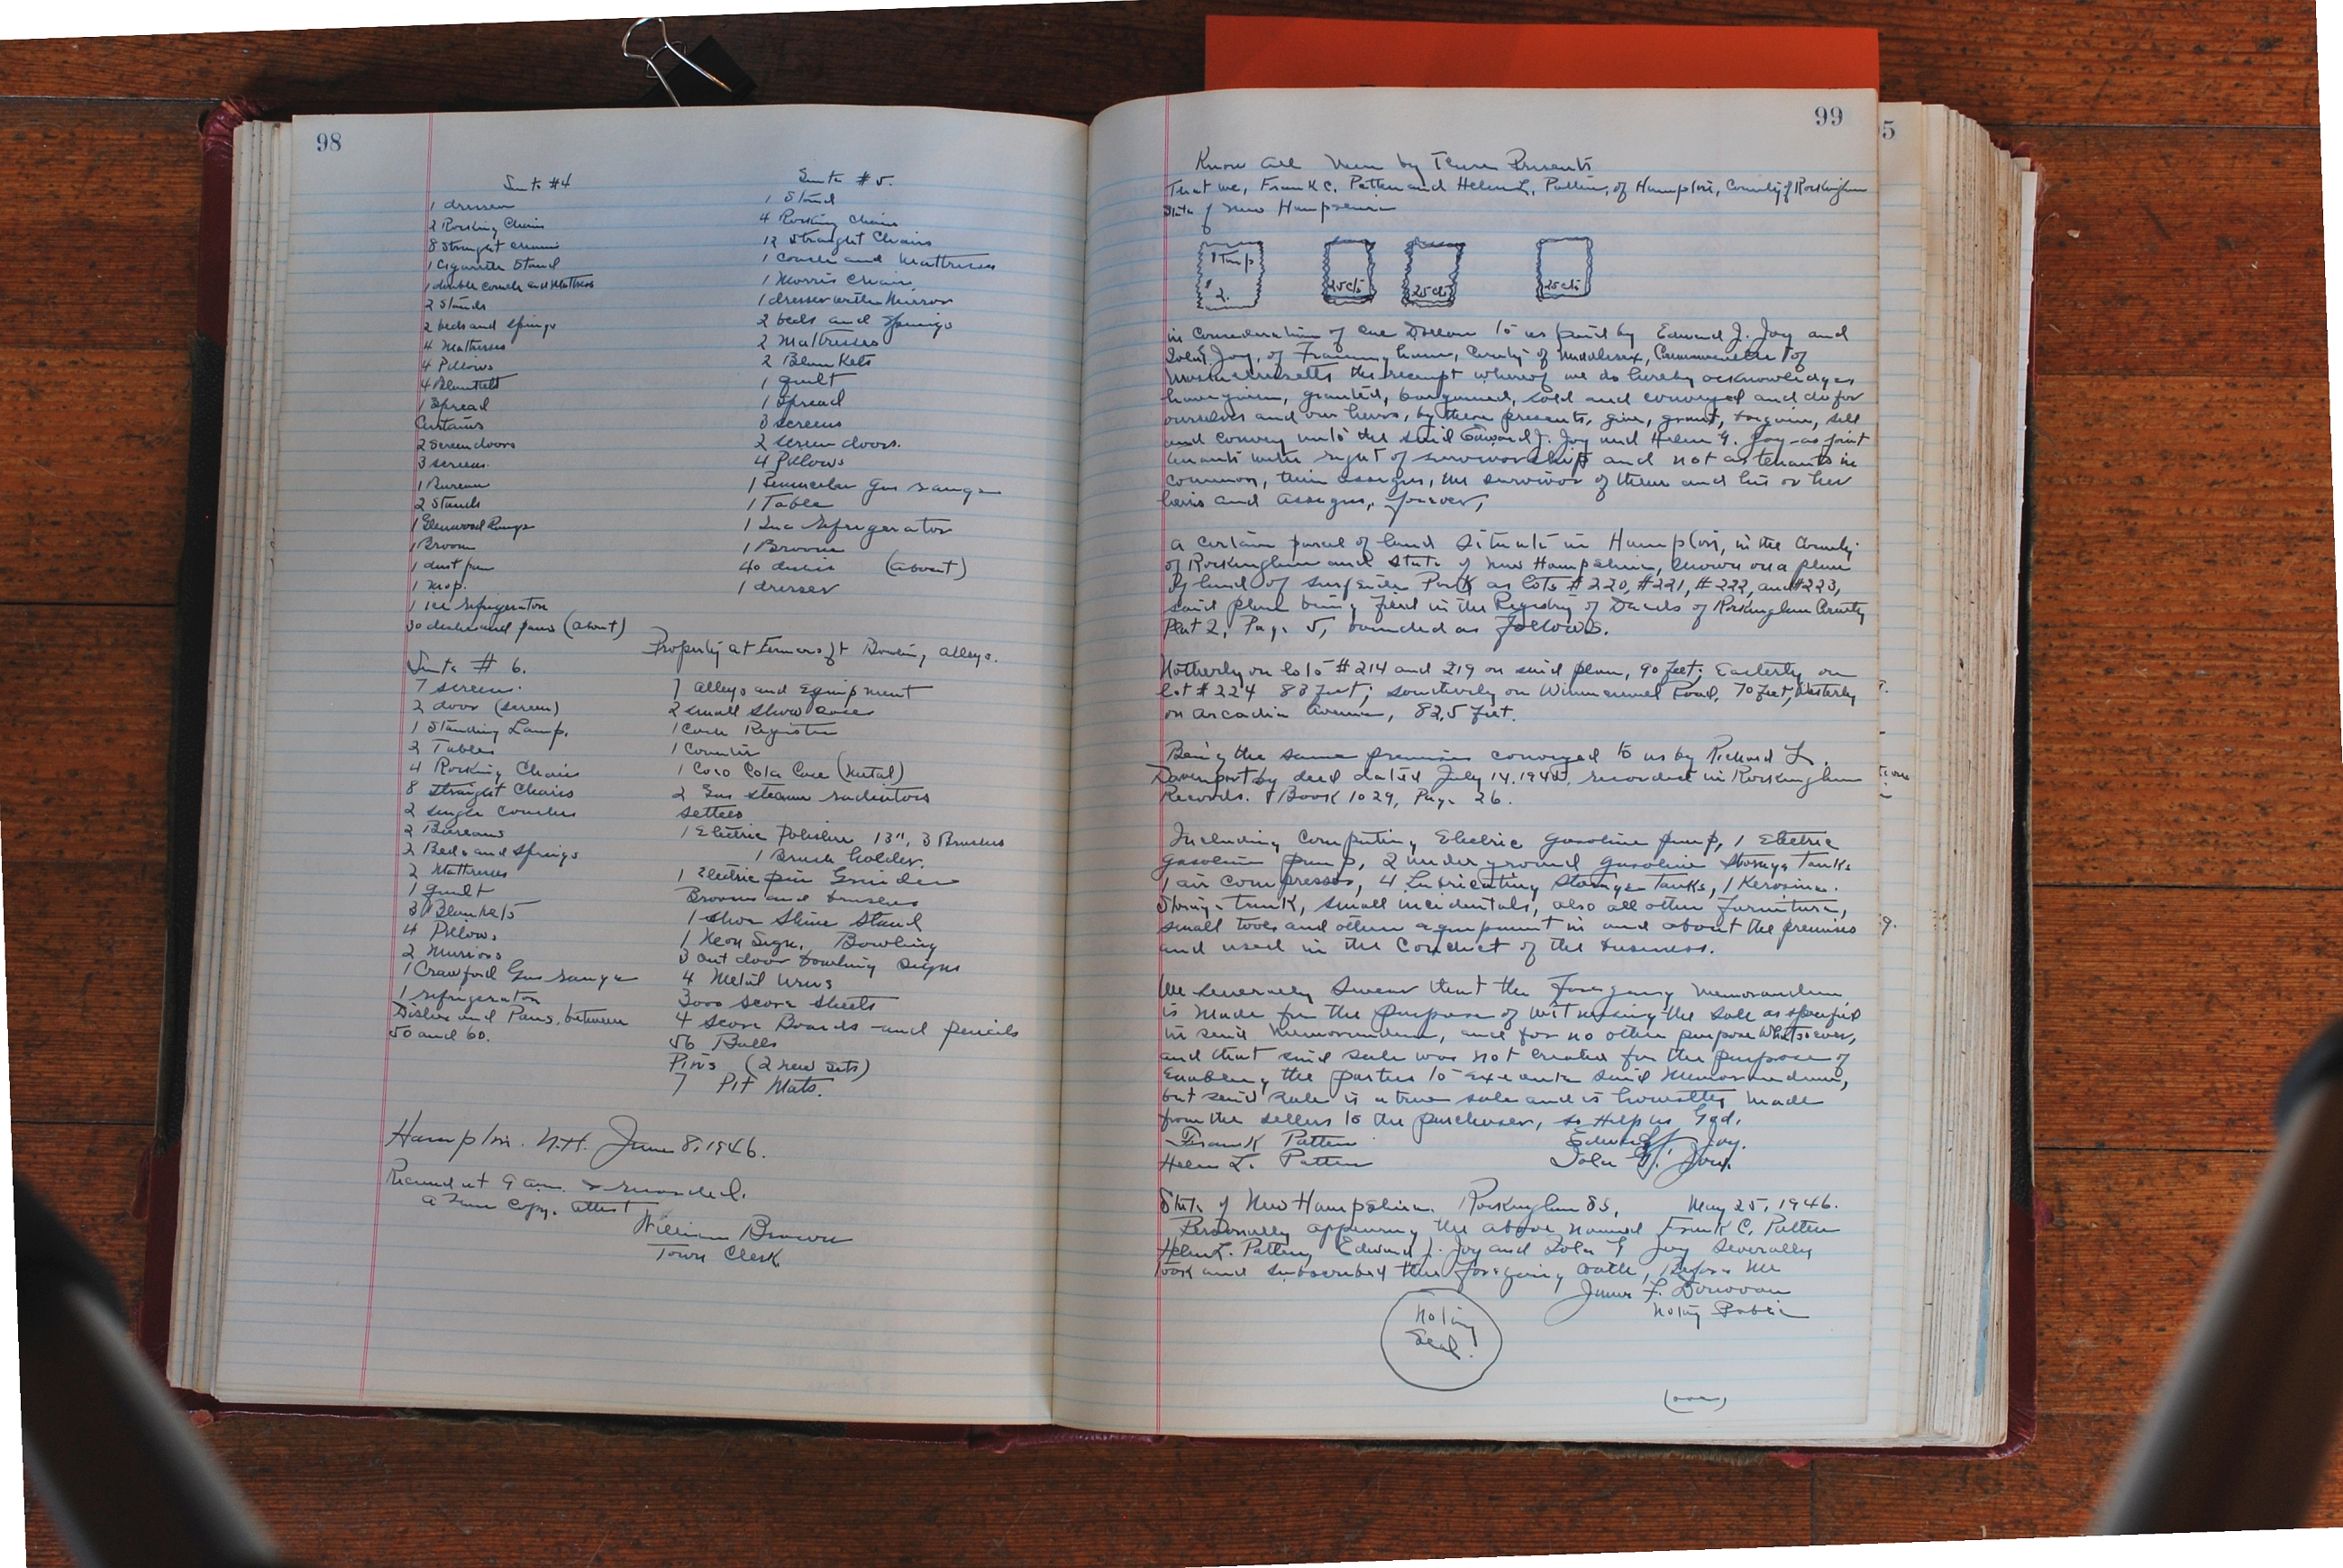 98
Suite #4
1 dresser
2 Rocking Chairs
8 Straight chairs
1 Cigarette Stand
1 double couch and Mattress
2 Stands
2 beds and Springs
4 Mattresses
4 Pillows
4 Blankets
1 Spread
Curtains
2 Screen doors
3 screens.
1 Bureau
2 Stands
1 Glenwood Range
1 Broom
1 dust pan
1 mop.
1 ice refrigerator
30 dishes and pans (about)
Suite # 5.
1 Stand
4 Rocking Chairs
12 Straight Chairs
1 Couch and Mattress
1 Morris Chair
1 dresser with Mirror
2 beds and Springs
2 Mattresses
2 Blankets
1 quilt
1 Spread
3 screens
2 screen doors.
4 Pillows
1 Gas range
1 Table
1 Ice refrigerator
1 Broom
40 dishes (about)
1 dresser
Suite # 6.
7 screens.
2 door (screen)
1 Standing Lamp.
2 Tables
4 Rocking Chairs
8 Straight Chairs
2 single couches
2 Bureaus
2 Beds and Springs
2 Mattresses
1 quilt
3 Blankets
4 Pillows
2 Mirrors
1 Crawford Gas range
1 refrigerator
Dishes and Pans, between
50 and 60.
Property at Bowling alleys.
7 alleys and Equipment
2 small show cases
1 Cash Register
1 Counter
1 Coco Cola Case (metal)
2 Gas steam radiators
settees
1 Electric Polisher 13", 3 Brushes
1 Brush holder.
1 Electric pin Grinder
Brooms and brushes
1 shoe Shine Stand
1 Neon Sign, Bowling
3 out door bowling signs
4 Metal urns
3000 score sheets
4 score Boards and pencils
56 Balls
Pins (2 new sets)
7 Pit Mats.
Hampton. N.H. June 8, 1946.
Received at 9 a.m. & recorded.
a True Copy. attest
William Brown
Town Clerk
99
Know all Men by These Presents
That we, Frank C. Patten and Helen L. Patten, of Hampton, County of Rockingham
State of New Hampshire
Stamp
$2.
25 cts
25 cts
25 cts
in Consideration of one Dollar to us paid by Edward J. Joy and
Joy, of Framingham, County of Middlesex, Commonwealth of
Massachusetts the receipt whereof we do hereby acknowledge,
have given, granted, bargained, sold and conveyed and do for
ourselves and our heirs, by these presents, give, grant, bargain, sell
and convey unto the said Edward J. Joy and Helen G. Joy as joint
tenants with right of survivorship and not as tenants in
common, their assigns, the survivor of them and his or her
heirs and assigns, forever,
a certain parcel of land Situate in Hampton, in the County
of Rockingham and State of New Hampshire, shown on a plan
of land of Surfside Park as lots #220, #221, #222, and #223,
said plan being filed in the Registry of Deeds of Rockingham County
Plat 2, Page 5, bounded as follows.
Northerly on lots #214 and 219 on said plan, 90 feet; Easterly on
lot #224 83 feet; southerly on Road, 70 feet, Westerly
on Arcadia Avenue, 82.5 feet.
Being the same premises conveyed to us by Richard L.
Davenport by deed dated July 14, recorded in Rockingham
Records. Book 1029, Page 26.
Including Computing Electric Gasoline pump, 1 Electric
Gasoline pump, 2 underground gasoline storage Tanks
1 air compressor, 4 Lubricating Storage Tanks, 1 Kerosine.
Storage tank, small incidentals, also all other furniture,
small tools and other equipment in and about the premises
and used in the Conduct of the business.
We severally swear that the foregoing Memorandum
is made for the purpose of witnessing the sale as specified
in said Memorandum, and for no other purpose whatsoever,
and that said sale was not created for the purpose of
Enabling the parties to execute said Memorandum,
but said sale is a true sale and is honestly made
from the sellers to the purchaser, so help us God.
Frank Patten Edward J. Joy.
Helen L. Patten G. Joy.
State of New Hampshire. Rockingham SS, May 25, 1946.
Personally appearing the above named Frank C. Patten
Helen L. Patten, Edward J. Joy and G Joy Severally
took and subscribed the foregoing oath, Before Me
James F. Donovan
Notary Public
Notary
Seal.
(over)